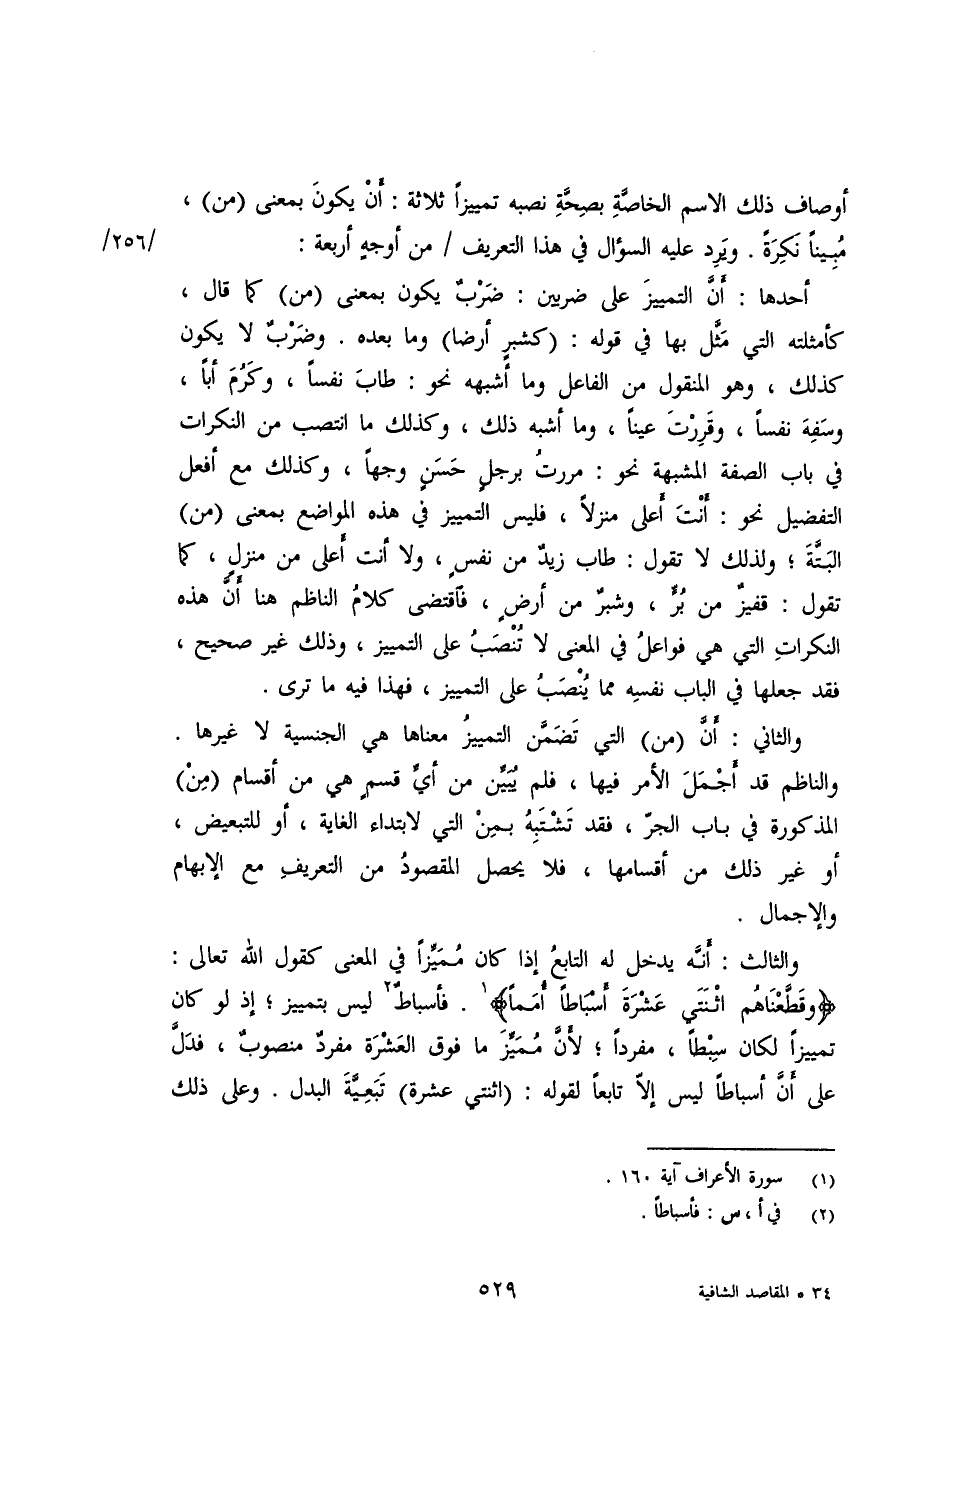 أوصاف ذلك الاسم الخاصَّةِ بصِحَّةِ نصبه تمييزاً ثلاثة : أَنْ يكونَ بمعنى (من) ،
مُبِيناً نَكِرَةً . ويَرِد عليه السؤال في هذا التعريف / من أوجهٍ أربعة : /٢٥٦/
أحدها : أَنَّ التمييزَ على ضربين : ضَرْبٌ يكون بمعنى (من) كما قال ،
كأمثلته التي مَثَّل بها في قوله : (كشبرٍ أرضا) وما بعده . وضَرْبٌ لا يكون
كذلك ، وهو المنقول من الفاعل وما أشبهه نحو : طابَ نفساً ، وكَرُمَ أباً ،
وسَفِهَ نفساً ، وقَرِرْتَ عيناً ، وما أشبه ذلك ، وكذلك ما انتصب من النكرات
في باب الصفة المشبهة نحو : مررتُ برجلٍ حَسَنٍ وجهاً ، وكذلك مع أفعل
التفضيل نحو : أَنْتَ أَعلى منزلاً ، فليس التمييز في هذه المواضع بمعنى (من)
البَتَّةَ ؛ ولذلك لا تقول : طاب زيدٌ من نفسٍ ، ولا أنت أَعلى من منزلٍ ، كما
تقول : قفيزٌ من بُرٍّ ، وشبرٌ من أرضٍ ، فاَقتضى كلامُ الناظم هنا أَنَّ هذه
النكراتِ التي هي فواعلُ في المعنى لا تُنْصَبُ على التمييز ، وذلك غير صحيح ،
فقد جعلها في الباب نفسِه مما يُنْصَبُ على التمييز ، فهذا فيه ما ترى .
والثاني : أَنَّ (من) التي تَضَمَّن التمييزُ معناها هي الجنسية لا غيرها .
والناظم قد أَجْمَلَ الأمر فيها ، فلم يُبَيِّن من أيِّ قسمٍ هي من أقسام (مِنْ)
المذكورة في باب الجرّ ، فقد تَشْتَبِهُ بـمِنْ التي لابتداء الغاية ، أو للتبعيض ،
أو غير ذلك من أقسامها ، فلا يحصل المقصودُ من التعريفِ مع الإبهام
والإجمال .
والثالث : أَنَّه يدخل له التابعُ إذا كان مُمَيِّزاً في المعنى كقول الله تعالى :
﴿وقَطَّعْنَاهُم اثْنَتَي عَشْرَةَ أَسْبَاطاً أُمَماً﴾١ . فأسباطٌ٢ ليس بتمييز ؛ إذ لو كان
تمييزاً لكان سِبْطاً ، مفرداً ؛ لأَنَّ مُمَيِّزَ ما فوق العَشْرَة مفردٌ منصوبٌ ، فدَلَّ
على أَنَّ أسباطاً ليس إلاّ تابعاً لقوله : (اثنتي عشرة) تَبَعِيَّةَ البدل . وعلى ذلك
(١) سورة الأعراف آية ١٦٠ .
(٢) في أ ، س : فأسباطاً .
٣٤ • المقاصد الشافية
٥٢٩